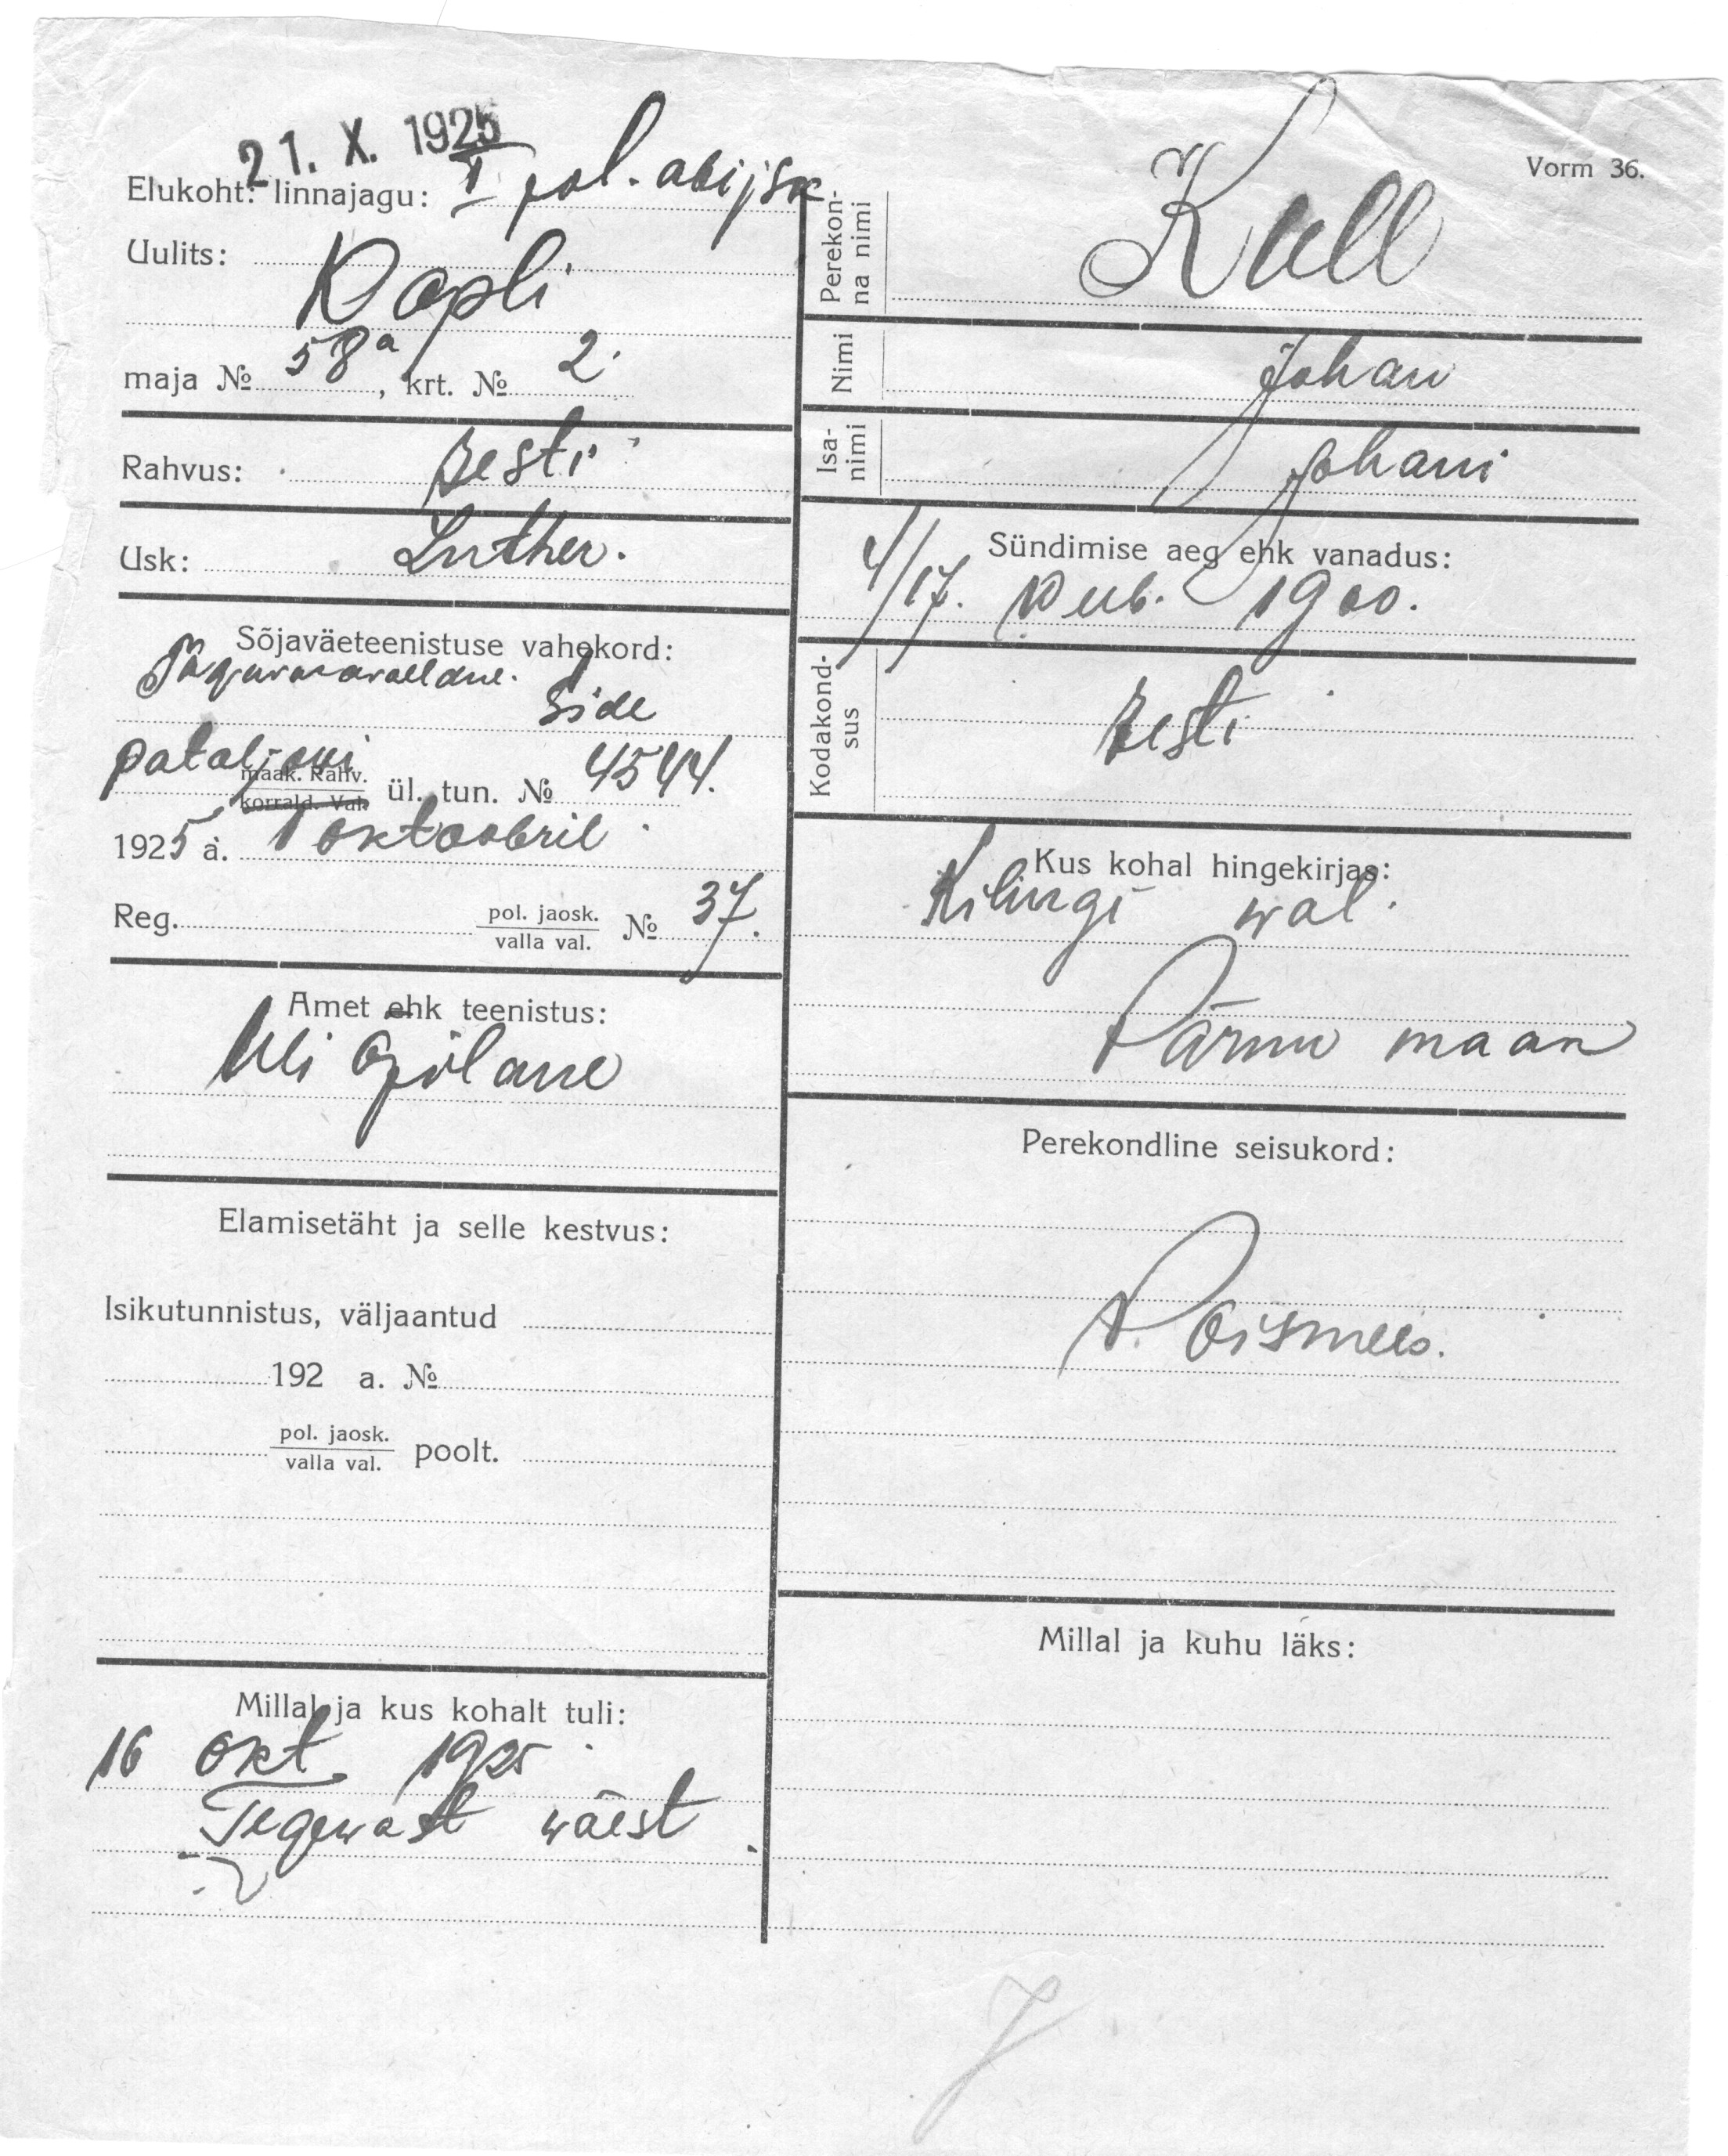 21. X. 1925
Vorm 36.
Elukoht: linnajagu: I pol. abijsk
Uulits:
Kopli
maja № 58a, krt. № 2.
Rahvus: Eesti
Usk: Luther.
Sõjaväeteenistuse vahekord:
Tagavaraväelane.
Side
pataljoni
maak. Rahv.
korrald. Vah. ül. tun. № 4544.
1925 a. 1 oktoobril
Reg. pol. jaosk. № 37.
valla val.
Amet ehk teenistus:
Üliõpilane
Elamisetäht ja selle kestvus:
Isikutunnistus, väljaantud
192 a. №
pol. jaosk.
valla val. poolt.
Millal ja kus kohalt tuli:
16 okt. 1925
Tegewast wäest
Perekon-
na nimi
Kull
Nimi Johan
Isa-
nimi
Johani
Sündimise aeg ehk vanadus:
4/17. 1900.
Kodakond-
sus
Eesti
Kus kohal hingekirjas:
Kilingi wal.
Pärnu maak
Perekondline seisukord:
Poismees.
Millal ja kuhu läks: